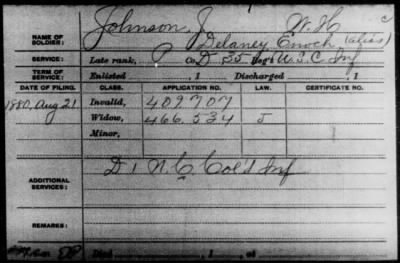 Johnson, J. W. H. c
NAME OF SOLDIER: Delaney, Enoch (alias)
SERVICE: Late rank, Co. D 35 Reg't U.S.C. Inf
TERM OF SERVICE: Enlisted , 1 Discharged , 1
DATE OF FILING. CLASS. APPLICATION NO. LAW. CERTIFICATE NO.
1880, Aug 21 Invalid, 409707
Widow, 466,534 J
Minor,
ADDITIONAL SERVICES: D 1 N.C. Col'd Inf
REMARKS:
Died , 1 , at